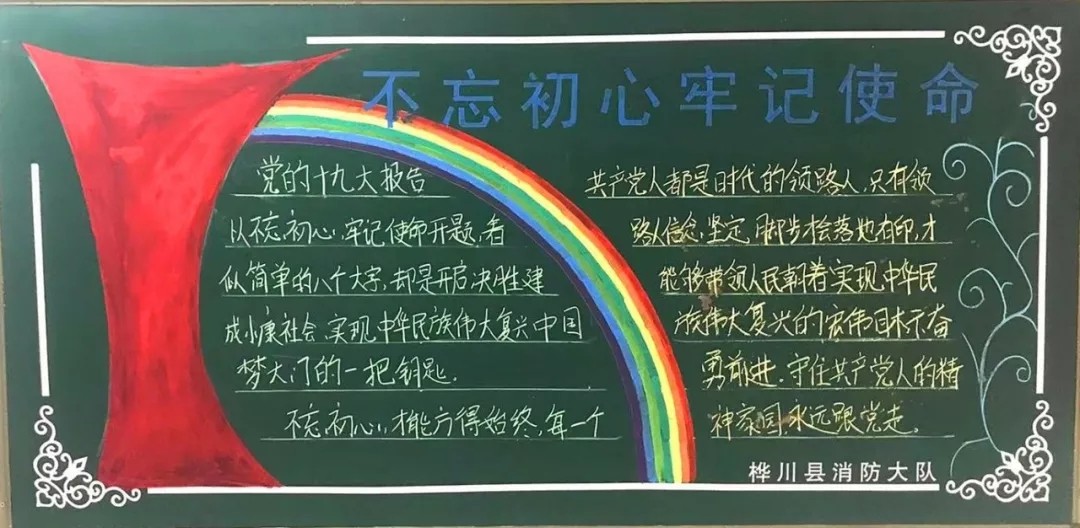 不忘初心牢记使命
党的十九大报告
以不忘初心,牢记使命开题,看
似简单的八个大字,却是开启决胜建
成小康社会,实现中华民族伟大复兴中国
梦大门的一把钥匙.
不忘初心,才能方得始终,每一个
共产党人都是时代的领路人,只有领
路人信念,坚定,脚步才会落地有印,才
能够带领人民朝着实现中华民
族伟大复兴的宏伟目标奋
勇前进.守住共产党人的精
神家园,永远跟党走.
桦川县消防大队